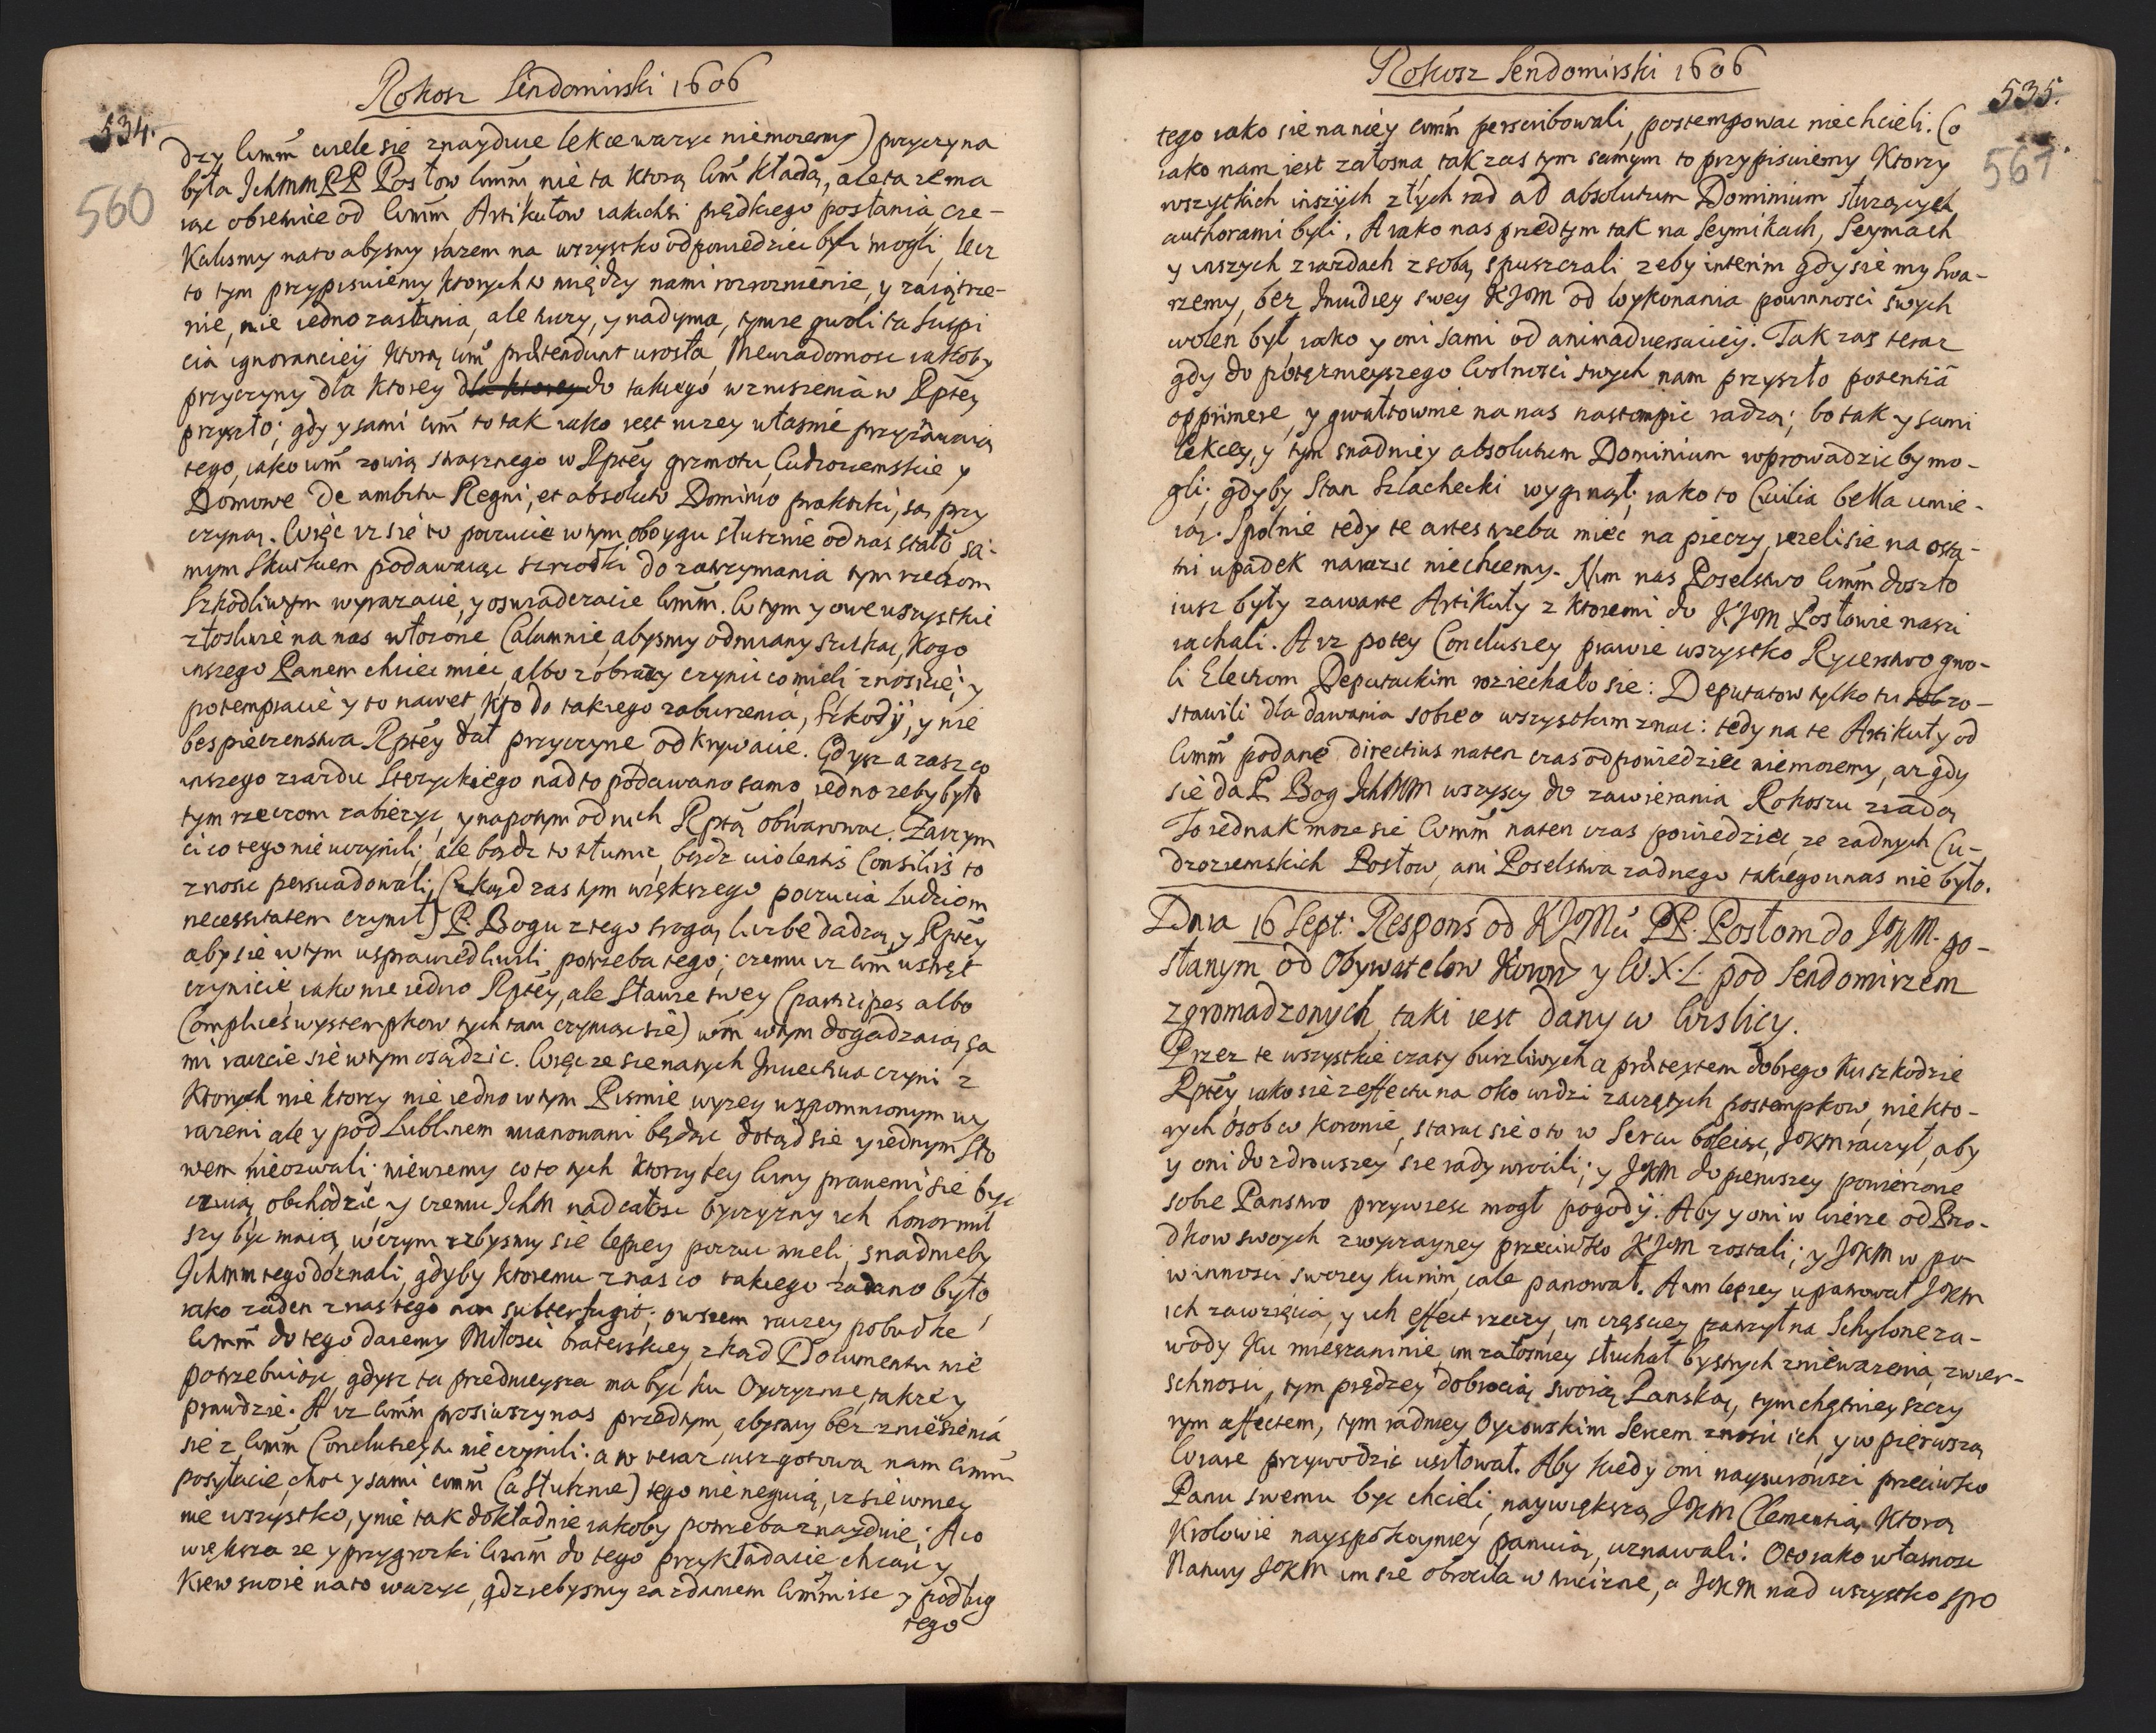 Rokosz Sendomirski 1606
534.
560
dzy Wmm wiele się znayduie lekce ważyć niemożemy) przyczyna
była Jchmm PP Posłow Wmm, nie ta ktorą Wm kładą, ale ta że ma
iąc obietnice od Wmm, Artikułow iakichsi prędkiego posłania, cze-
kalismy na to abysmy razem na wszystko odpowiedziec byli mogli, lecz
to tym przypisuiemy ktorych to między nami rozroznienie, y zaiątrze-
nie, nie iedno zasłania, ale tuczy, y nadyma, tymże gwoli ta suspi
cia ignoranciej ktorą Wm prætendunt urosła, Niewiadomosc iakoby
przyczyny dla ktorey do takiego wzruszenia w Rptey
przyszło; gdy y sami Wm to tak iako iest rzeczy własnie przyznawaią
tego, iako Wm zowią strasznego w Rptey grzmotu, Cudzoziemskie y
Domowe De ambitu Regni, et absoluto Dominio praktiki, są przy
czyną. Więc iż się to poczucie w tym oboygu słusznie od nas stało, sa-
mym skutkiem podawaiąc srzodki do zatrzymania tym rzeczom
szkodliwym wyrazacie, y oswiadczacie Wmm. W tym y owe wszystkie
złosliwie na nas włożone Calumnie, abysmy odmiany szukac, Kogo
inszego Panem chciec miec, albo zobrazy czynic co mieli znosicie, y
potempiacie y to nawet, kto do takiego zaburzenia, szkody, y nie
bespieczenstwa Rptey dał przyczyne odkrywacie. Gdysz a zasz co
inszego z ziazdu Stężyckiego nad to podawano samo, iedno zeby było
tym rzeczom zabieżyc, y napotym od nich Rptą obwarowac. Zaczym
ci co tego nie uczynili, ale bądz to tłumic, bądz violentis Consiliis to
znosic persuadowali, (skąd zas tym większego poczucia Ludziom
necessitatem czynił) P. Bogu z tego srogą liczbe dadzą, y Rptey
aby sie w tym usprawiedliwili potrzeba tego; czemu iz Wm wstręt
czynicie, iako nie iedno Rptey, ale Sławie swey (participes albo
Complices wystempkow tych tam czyniac się) Wm w tym dogadzaią, sa
mi raczcie sie w tym osądzic. Więc ze sie na tych Invectiva czyni z
ktorych niektorzy nie iedno w tym Pismie wyzey wspomnionym wy
razeni, ale y pod Lublinem mianowani będąc dotąd się y iednym sło
wem nieozwali: niewiemy co to tych ktorzy tey winy prawemi się byc
czuią obchodzic, y czemu Jchm nad całosc oyczyzny ich honor mil
szy byc maią, w czym izbysmy się lepiey poczuc mieli, snadnieby
Jchmm tego doznali, gdyby ktoremu z nas co takiego zadano było
iako zaden z nas tego non subterfugit; owszem raczey pobudke
Wmm do tego daiemy Miłosci braterskiey, zkąd Documentu nie
potrzebuiąc, gdysz ta przednieysza ma byc ku Oyczyznie, takze y
prawdzie. A iz Wmm prosiwszy nas przedtym, abysmy bez zniesienia
się z Wmm Conclusiey tu nie czynili: a to teraz iusz gotową nam Wmm
posyłacie, choc y sami Wmm (a słusznie) tego nie neguią, iz się w niey
nie wszystko, y nie tak dokładnie iakoby potrzeba znayduie, A co
większa ze y przygrozki Wmm do tego przykładacie chcąc y
krew swoie na to wazyc, gdziebysmy za zdaniem Wmm isc y podług
tego
Rokosz Sendomirski 1606
535.
561
tego iako sie na niey Wmm perscribowali, postempowac niechcieli. Co
iako nam iest załosna, tak zas tym samym to przypisuiemy ktorzy
wszystkich inszych złych rad ad absolutum Dominium słuzących
authorami byli. A iako nas przedtym tak na Seymikach, Seymach
y inszych ziazdach z sobą spuszczali, zeby interim gdy sie my swa-
rzemy, bez Inuidiey swey KJM od wykonania powinnosci swych
wolen był, iako y oni sami od animadversiey. Tak zas teraz
gdy do potęznieyszego Wolnosci swych nam przyszło potentiâ
opprimere, y gwałtownie na nas nastompic radzą; bo tak y sami
lekcey, y tym snadniey absolutum Dominium wprowadzic by mo-
gli, gdyby Stan Szlachecki wyginął, iako to Civilia bella umie-
ią. Spolnie tedy te artes trzeba miec na pieczy, iezeli sie na osta-
tni upadek narazic niechcemy. Nim nas Poselstwo Wmm doszło
iusz były zawarte Artikuły z ktoremi do KJM Posłowie naszi
iachali. A iz po tey Conclusiey prawie wszystko Rycerstwo gwo-
li Elecziom Deputackim roziechało sie: Deputatow tylko tu zo-
stawili dla dawania sobie o wszystkim znac: tedy na te Artikuły od
Wmm podane directius naten czas odpowiedziec niemozemy, az gdy
się da P. Bog JchMM wszyscy do zawierania Rokoszu ziadą
To iednak moze sie Wmm naten czas powiedziec, ze zadnych Cu-
dzoziemskich Posłow, ani Poselstwa zadnego takiego u nas nie było.
Dnia 16 Sept: Respons od KJMci PP. Posłom do JKM. po-
słanym od Obywatelow Koron: y W.X.L. pod Sendomirzem
zgromadzonych, taki iest dany w Wislicy.
Przez te wszystkie czasy burzliwych a prætextem dobrego ku szkodzie
Rptey iako się z effectu na oko widzi zaczętych postempkow, niekto-
rych osob w Koronie, starac się o to w Sercu boleiąc, JKM raczył, aby
y oni do zdrowszey sie rady wrocili; y JKM do pierwszey powierzone
sobie Panstwo przywiesc mogł pogody. Aby y oni w wierze od Przo-
dkow swoych zwyczayney przeciwko KJM zostali; y JKM w po
winnosci swoiey ku nim, cale panował. A im lepiey upatrował JKM
ich zawzięcia, y ich effect rzeczy, im częsciey patrzył na Schylone za-
wody ku mieszaninie, im załosniey słuchał bystrych zniewazenia zwier-
schnosci, tym prędzey dobrocią swoią Panską, tym chętniey szczy
rym affectem, tym radniey Oycowskim Sercem znosic ich, y w pierwszą
Wiare przywodzic usiłował. Aby kiedy oni naysurowszi przeciwko
Panu swemu byc chcieli, naywiększą JKM Clementią, ktorą
Krolowie nayspokoyniey panuią, uznawali: Oto iako własnosc
Natury JKM im się obrociła w truciznę, a JKM nad wszystko spo